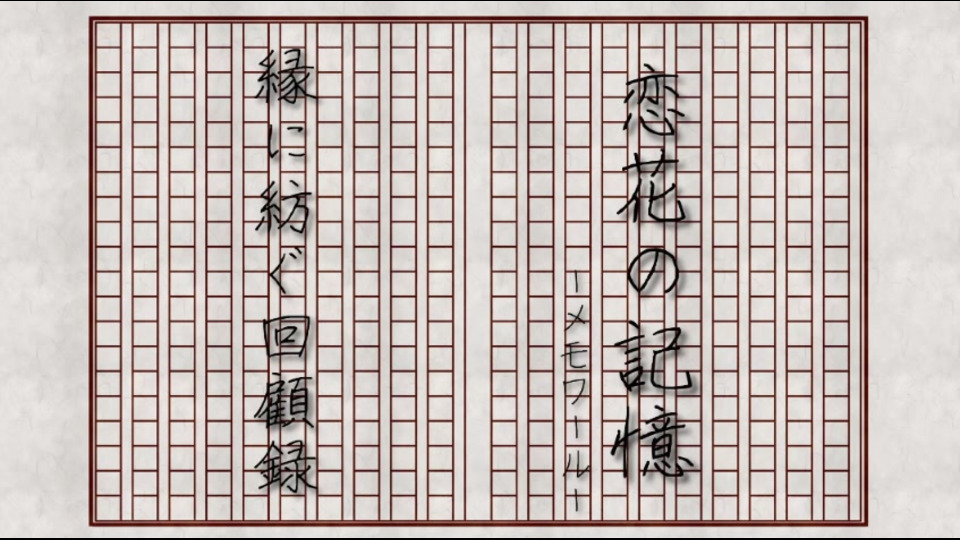 恋花の記憶
ーメモワールー
縁に紡ぐ回顧録